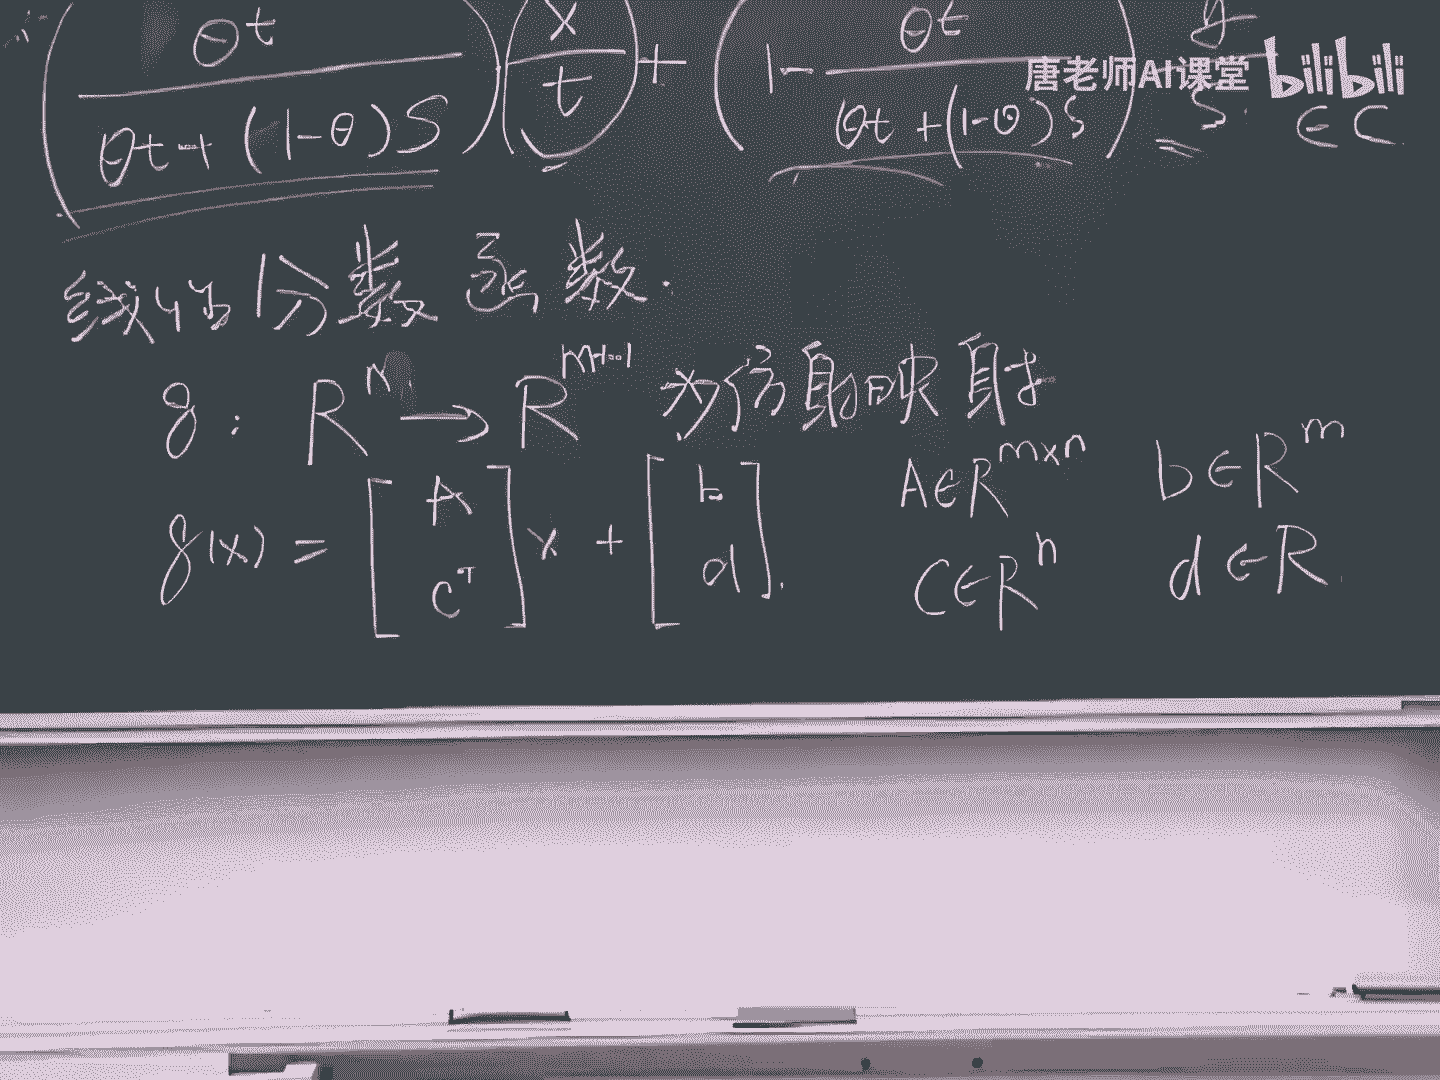 (θt / (θt + (1-θ)S)) (x/t) + (1 - θt / (θt + (1-θ)S)) y/S ∈ C
唐老师AI课堂 bilibili
线性分数函数.
g : R^n → R^{m+1} 为仿射映射
g(x) = [A c^T] x + [b d]. A∈R^{m×n} b∈R^m
C∈R^n d∈R.